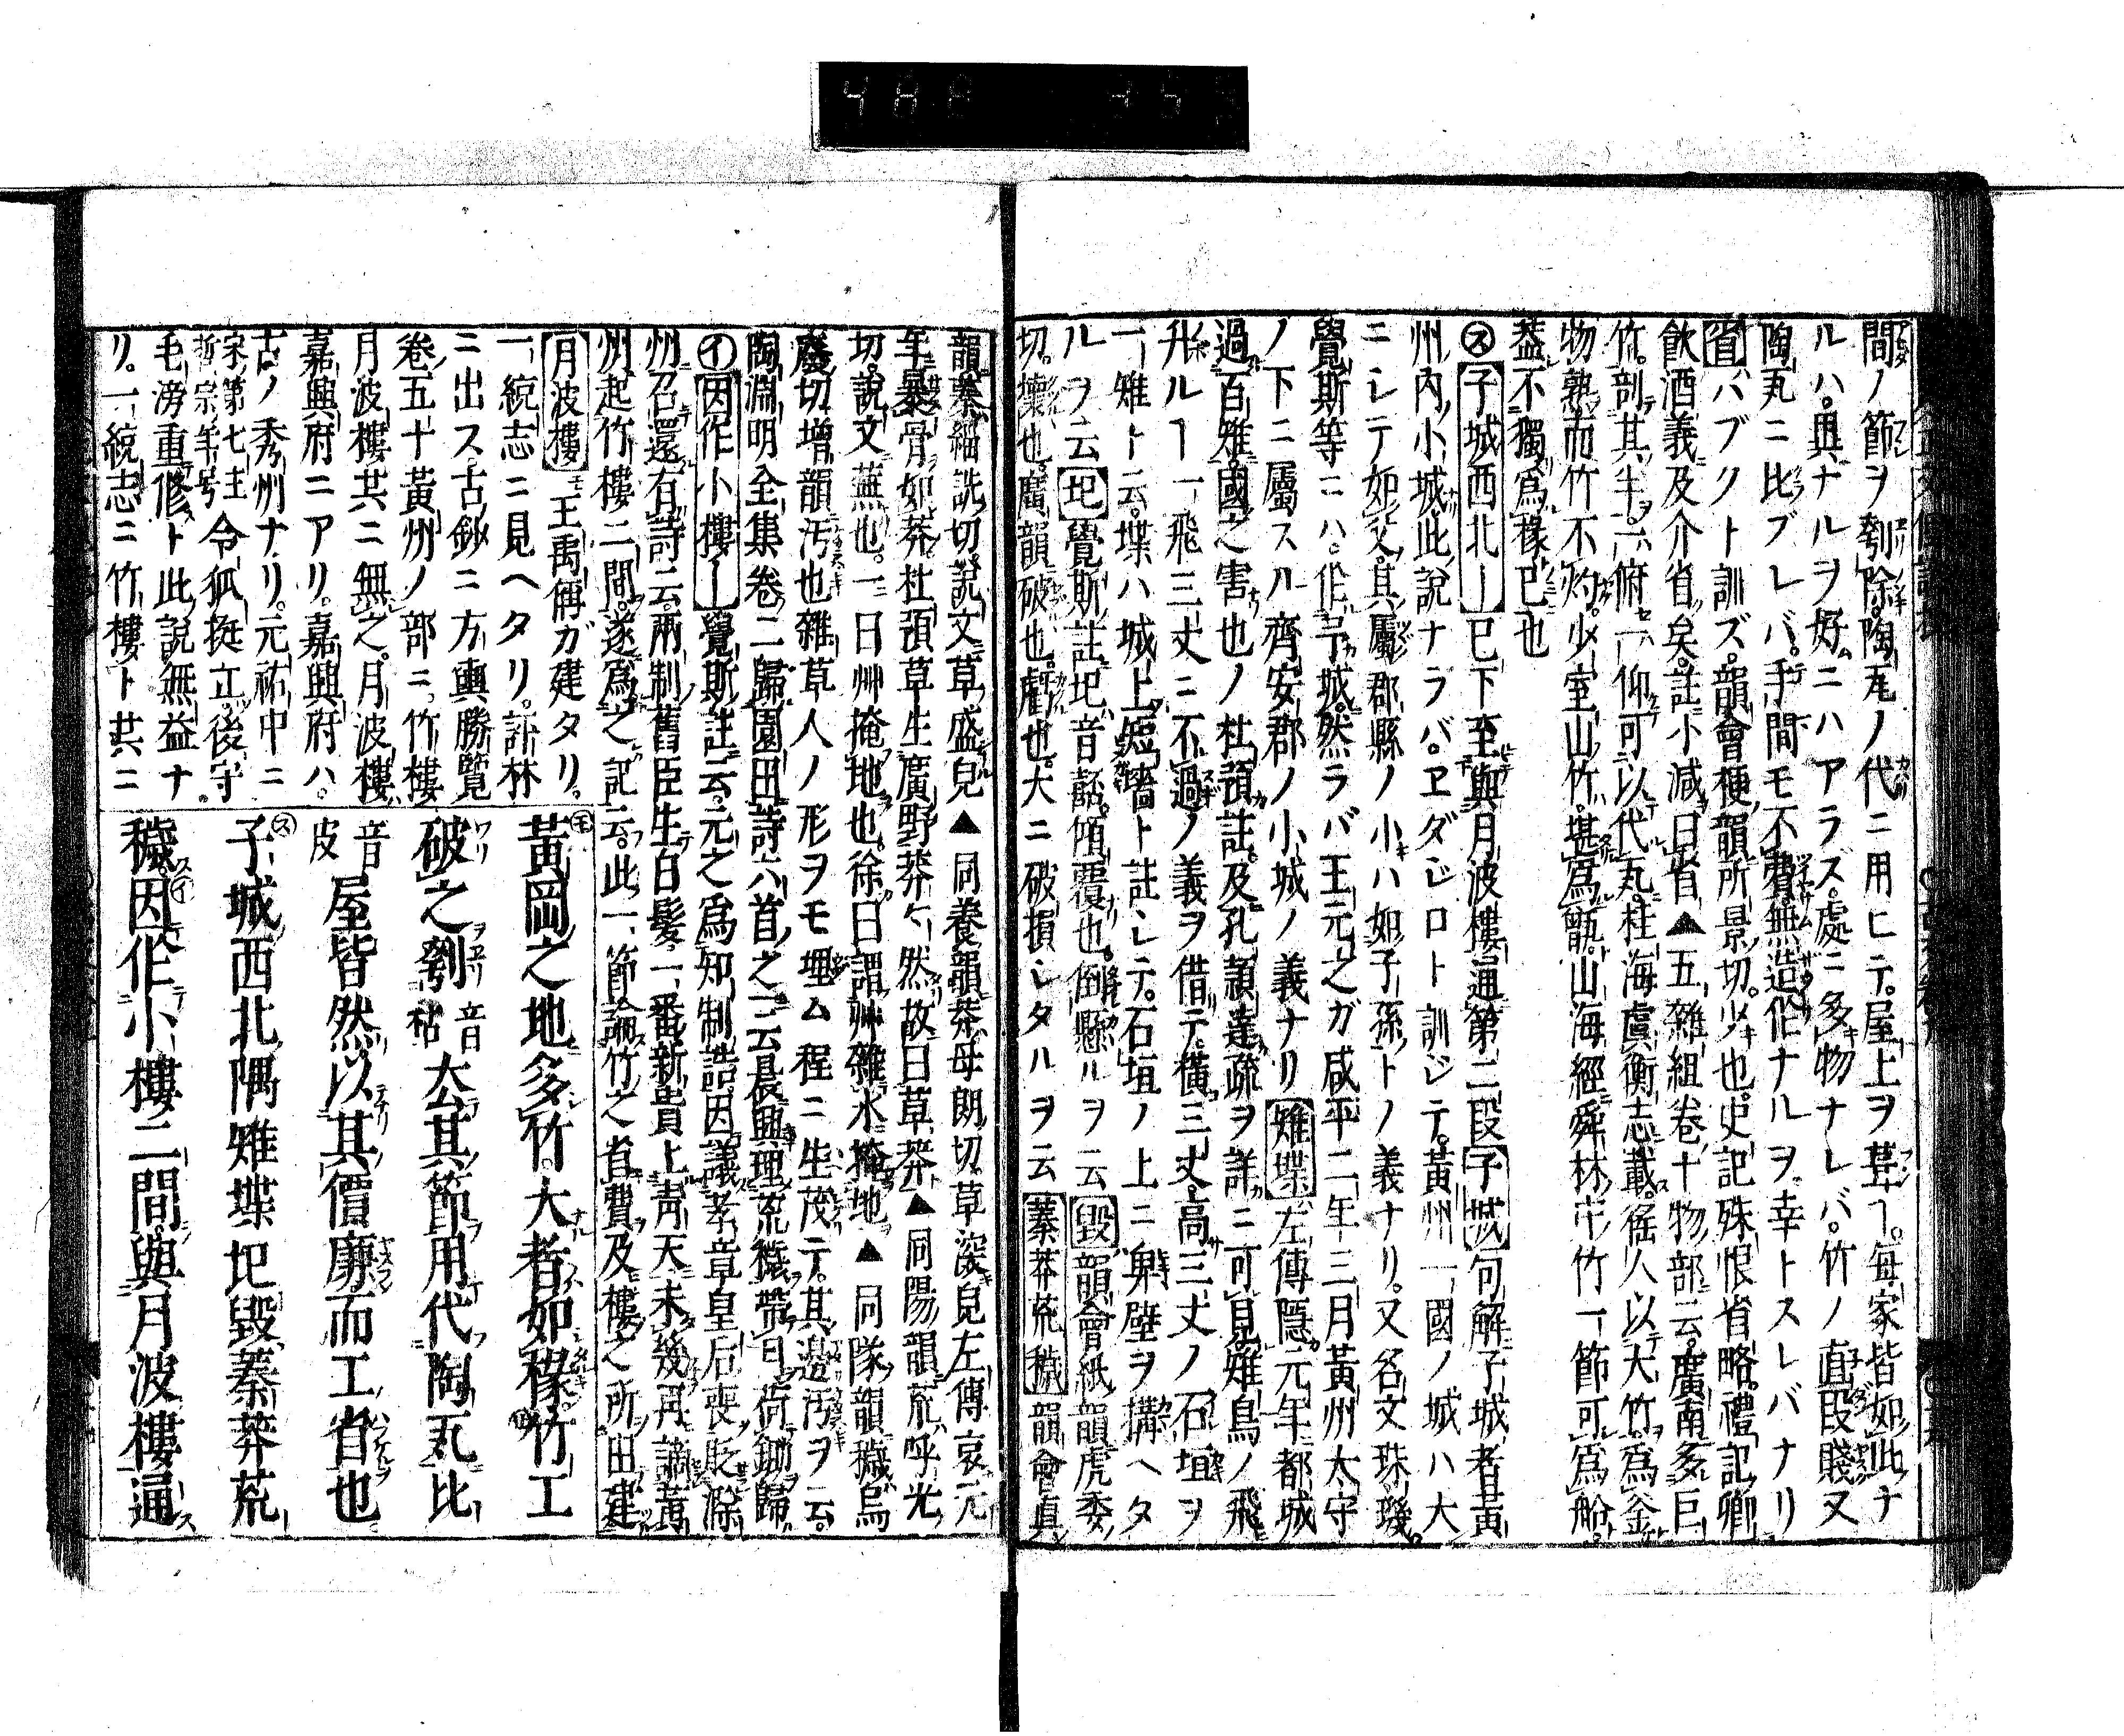 間ノ節ヲ刳除。陶瓦ノ代ニ用ヒテ。屋上ヲ葺ヿ。每家皆如此ナ
ルハ。與ナルヲ好ニハアラズ。處ニ多物ナレバ。竹ノ直段賤又
陶瓦ニ比ブレバ。手間モ不費無造作ナルヲ。幸トスレバナリ
省ハブクト訓ズ。韻會梗韻所景切。少也。史記殊恨省略。禮記鄉
飲酒義及介省矣。註小減曰省▲五雜組卷十物部云。廣南多巨
竹。剖其半。一俯一仰。可以代瓦。桂海虞衡志載。徭人以大竹爲釜。
物熟而竹不灼。少室山竹。堪爲甑。山海經舜林中竹一節可爲船。
蓋不獨爲椽已也
㋜子城西北ー已下至與月波樓通第二段子城句解子城者黃
州內小城此說ナラバ。ヱダジロト訓ジテ。黃州一國ノ城ハ大
ニシテ如父。其屬郡縣ノ小ハ如子孫トノ義ナリ。又名文珠璣。
覺斯等ニハ。作于城。然ラバ王元之ガ咸平二年三月黃州太守
ノ下ニ屬スル齊安郡ノ小城ノ義ナリ雉堞左傳隱元年都城
過百雉國之害也ノ杜預註及孔頴達疏ヲ詳ニ可見。雉鳥ノ飛
升ルヿ一飛三丈ニ不過ノ義ヲ借テ。橫三丈高三丈ノ石垣ヲ
一雉ト云。堞ハ城上短墻ト註シテ。石垣ノ上ニ鼻壁ヲ搆ヘタ
ルヲ云圯覺斯註圯音嚭。傾覆也。倒懸ルヲ云毀韻會紙韻虎委
切。壞也。廣韻破也。虧也。大ニ破損シタルヲ云蓁莽荒穢韻會眞
韻蓁緇詵切說文草盛皃▲同養韻莽母朗切。草深皃左傳哀元
年暴骨如莽。杜預草生廣野莽々然故曰草莽▲同陽韻荒呼光
切。說文蕪也。一曰艸掩地也。徐曰謂艸雜水掩地▲同隊韻穢烏
廢切增韻汚也雜草人ノ形ヲモ埋ム程ニ生茂テ。其邊汚ヲ云。
陶淵明全集卷二歸園田詩六首之三云晨興理荒穢帶月荷鋤歸
㋑因作小樓ー覺斯註云。元之爲知制誥。因議孝章皇后喪貶滁
州召還有詩云。兩制舊臣生白髮。一番新貴上靑天。未幾再謫黃
州起竹樓二間。遂爲之記云。此一節論竹之省費及樓之所由建
月波樓 王禹偁ガ建タリ。
一統志ニ見ヘタリ。評林
ニ出ス古鈔ニ方輿勝覽
卷五十黃州ノ部ニ。竹樓
月波樓共ニ無之。月波樓
嘉興府ニアリ。嘉興府ハ。
古ノ秀州ナリ。元祐中ニ
宋第七主哲宗年号 令狐挺立。後守
毛滂重修ト此說無益ナ
リ。一統志ニ竹樓ト共ニ
黃岡之地多竹。大者如椽。竹工
破之刳音枯去其節用代陶瓦比
音皮屋皆然以其價廉而工省也
子城西北隅雉堞圯毀蓁莽荒
穢。因作小樓二間。與月波樓通